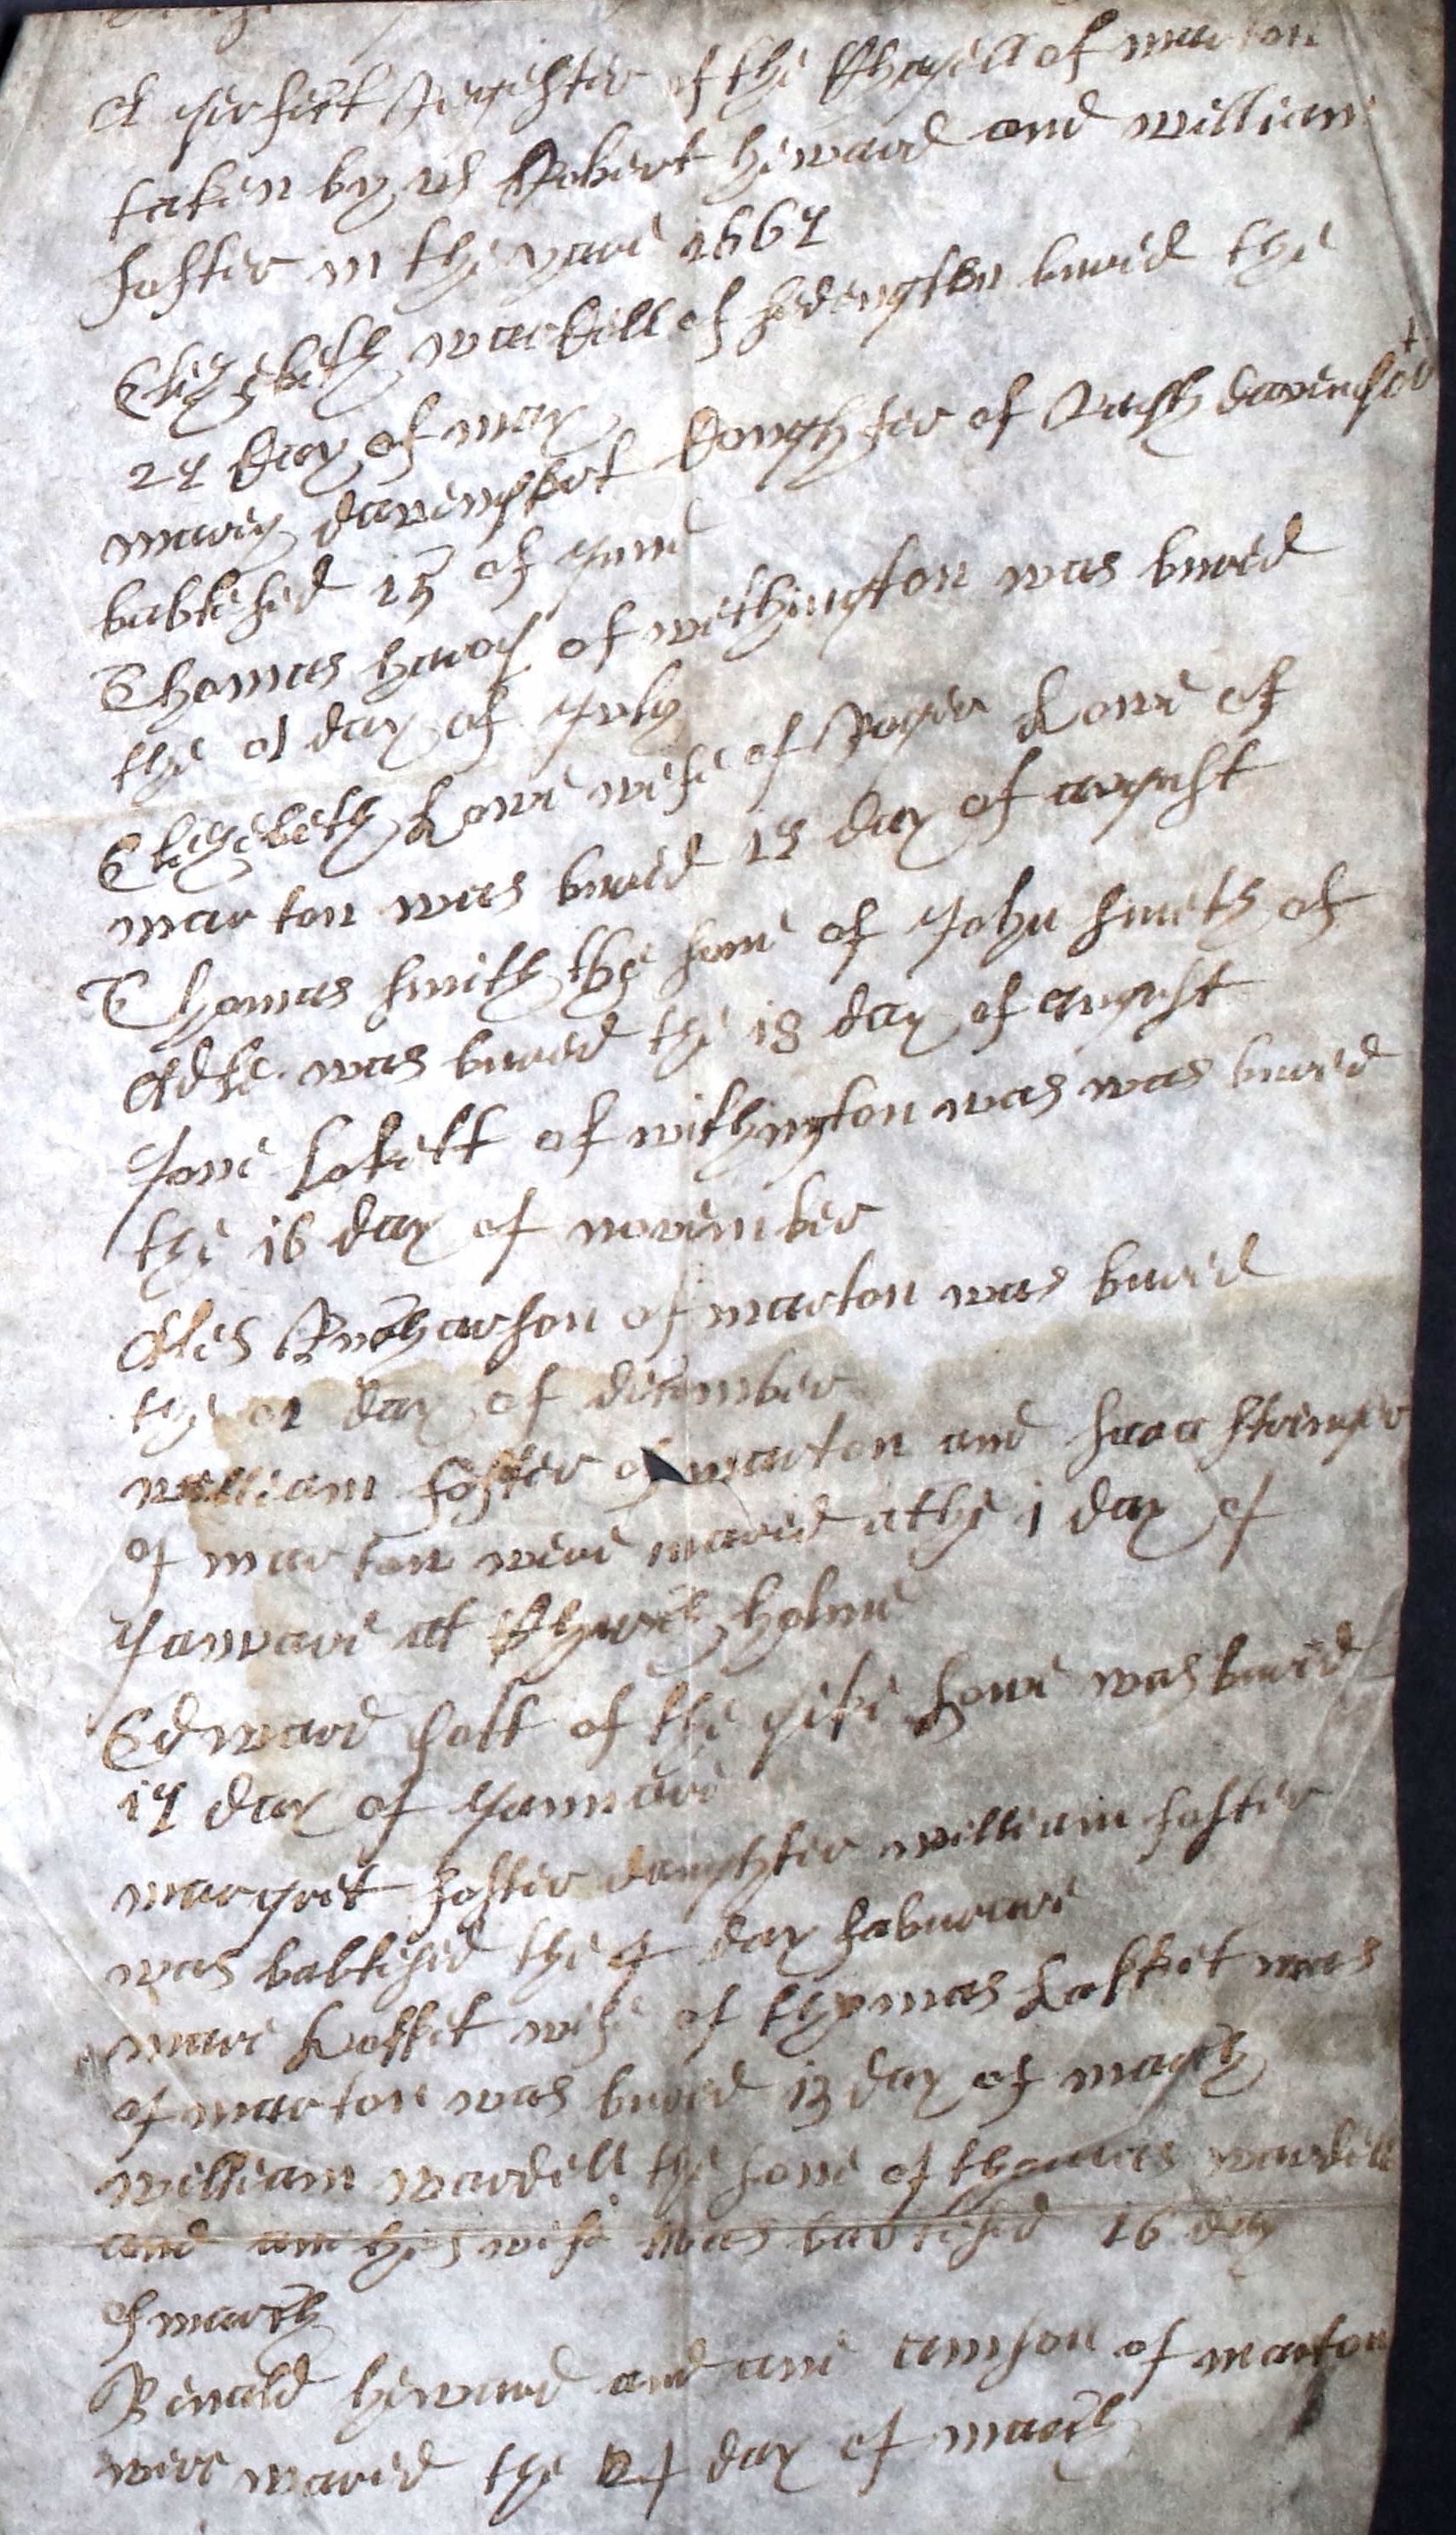 A perfect Regester of the Chapell of marton
taken by us Robert heward and william
foster in the yeare 1664
Elizebeth warkell of sedengton buried the
24 day of may
marey davenport doughter of Raph davenport
babtesed 15 of June
Thomas of withington was buried
the 01 day of July
Elizebeth Lowe wife of Roger Lowe of
marton was buried 13 day of august
Thomas smith the sone of John smeth of
was buried the 18 day of august
Jone Lokett of withington was was buried
the 16 day of november
Ales Richarson of marton was buried
the 01 day of desember
william foster of marton and
of marton were maried athe 1 day of
Januare at Church holme
Edward of the was buried
14 day of Januare
margret foster daughter william foster
was babtesed the 4 day fabuare
mare Lokket wife of thomas Lokket was
of marton was buried 13 day of march
william wardell the sone of thomas wardell
and ann his wife was babtesed 16 day
of march
Renald heward and ane of marton
were maried the 24 day of march